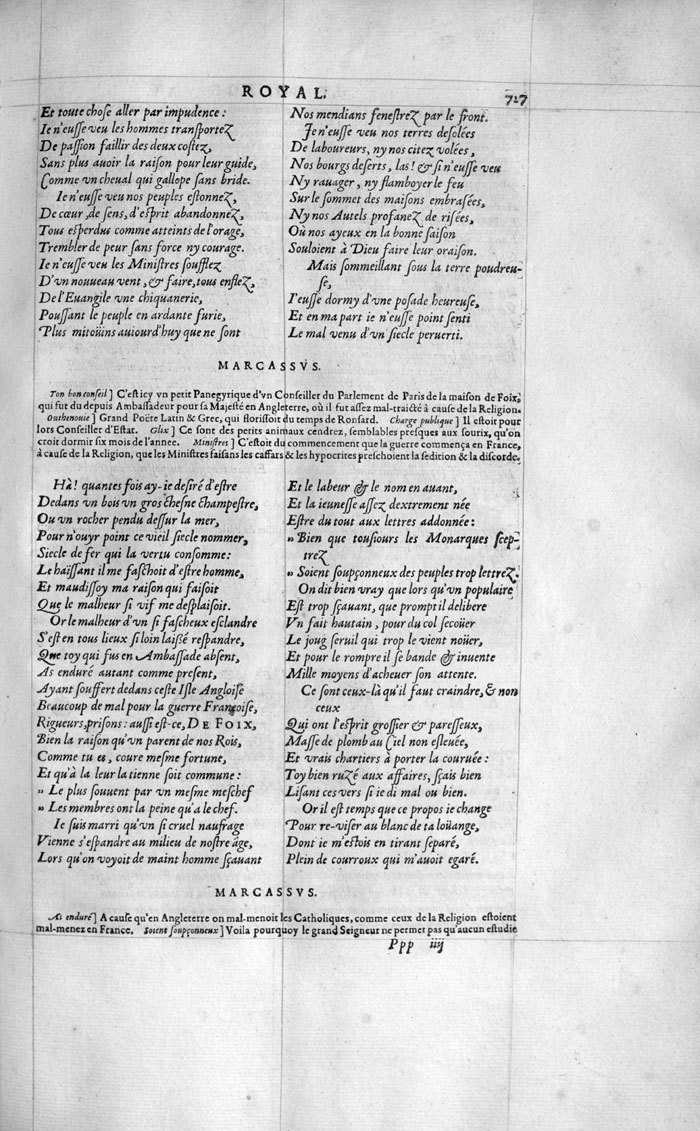 ROYAL.
727
Et toute chose aller par impudence :
Ie n'eusse veu les hommes transportez
De passion faillir des deux costez,
Sans plus auoir la raison pour leur guide,
Comme vn cheual qui gallope sans bride.
Ie n'eusse veu nos peuples estonnez,
De cœur, de sens, d'esprit abandonnez,
Tous esperdus comme atteints de l'orage,
Trembler de peur sans force ny courage.
Ie n'eusse veu les Ministres soufflez
D'vn nouueau vent, & faire, tous enflez,
De l'Euangile vne chiquanerie,
Poussant le peuple en ardante furie,
Plus mitoüins auiourd'huy que ne sont
Nos mendians fenestrez par le front.
Je n'eusse veu nos terres desolées
De laboureurs, ny nos citez volées,
Nos bourgs deserts, las ! & si n'eusse veu
Ny rauager, ny flamboyer le feu
Sur le sommet des maisons embrasées,
Ny nos Autels profanez de risées,
Où nos ayeux en la bonne saison
Souloient à Dieu faire leur oraison.
Mais sommeillant sous la terre poudreu-
se,
I'eusse dormy d'vne posade heureuse,
Et en ma part ie n'eusse point senti
Le mal venu d'vn siecle peruerti.
MARCASSVS.
Ton bon conseil ] C'est icy vn petit Panegyrique d'vn Conseiller du Parlement de Paris de la maison de Foix,
qui fut du depuis Ambassadeur pour sa Majesté en Angleterre, où il fut assez mal-traicté à cause de la Religion.
Outhenouie ] Grand Poëte Latin & Grec, qui florissoit du temps de Ronsard. Charge publique ] Il estoit pour
lors Conseiller d'Estat. Glix ] Ce sont des petits animaux cendrez, semblables presques aux souris, qu'on
croit dormir six mois de l'annee. Ministres ] C'estoit du commencement que la guerre commença en France,
à cause de la Religion, que les Ministres faisans les caffars & les hypocrites preschoient la sedition & la discorde.
Hà ! quantes fois ay-ie desiré d'estre
Dedans vn bois vn gros chesne champestre,
Ou vn rocher pendu dessur la mer,
Pour n'ouyr point ce vieil siecle nommer,
Siecle de fer qui la vertu consomme :
Le haïssant il me faschoit d'estre homme,
Et maudissoy ma raison qui faisoit
Que le malheur si vif me desplaisoit.
Or le malheur d'vn si fascheux esclandre
S'est en tous lieux si loin laißé respandre,
Que toy qui fus en Ambassade absent,
As enduré autant comme present,
Ayant souffert dedans ceste Isle Angloise
Beaucoup de mal pour la guerre Françoise,
Rigueurs, prisons : aussi est-ce, DE FOIX,
Bien la raison qu'vn parent de nos Rois,
Comme tu es, coure mesme fortune,
Et qu'à la leur la tienne soit commune :
» Le plus souuent par vn mesme meschef
» Les membres ont la peine qu'a le chef.
Ie suis marri qu'vn si cruel naufrage
Vienne s'espandre au milieu de nostre âge,
Lors qu'on voyoit de maint homme sçauant
Et le labeur & le nom en auant,
Et la ieunesse assez dextrement née
Estre du tout aux lettres addonnée :
» Bien que tousiours les Monarques scep-
trez
» Soient soupçonneux des peuples trop lettrez.
On dit bien vray que lors qu'vn populaire
Est trop sçauant, que prompt il delibere
Vn fait hautain, pour du col secoüer
Le joug seruil qui trop le vient noüer,
Et pour le rompre il se bande & inuente
Mille moyens d'acheuer son attente.
Ce sont ceux-là qu'il faut craindre, & non
ceux
Qui ont l'esprit grossier & paresseux,
Masse de plomb au Ciel non esleuée,
Et vrais chartiers à porter la couruée :
Toy bien ruzé aux affaires, sçais bien
Lisant ces vers si ie di mal ou bien.
Or il est temps que ce propos ie change
Pour re-viser au blanc de ta loüange,
Dont ie m'estois en tirant separé,
Plein de courroux qui m'auoit egaré.
MARCASSVS.
As enduré ] A cause qu'en Angleterre on mal-menoit les Catholiques, comme ceux de la Religion estoient
mal-menez en France. Soient soupçonneux ] Voila pourquoy le grand Seigneur ne permet pas qu'aucun estudie
Ppp iiij